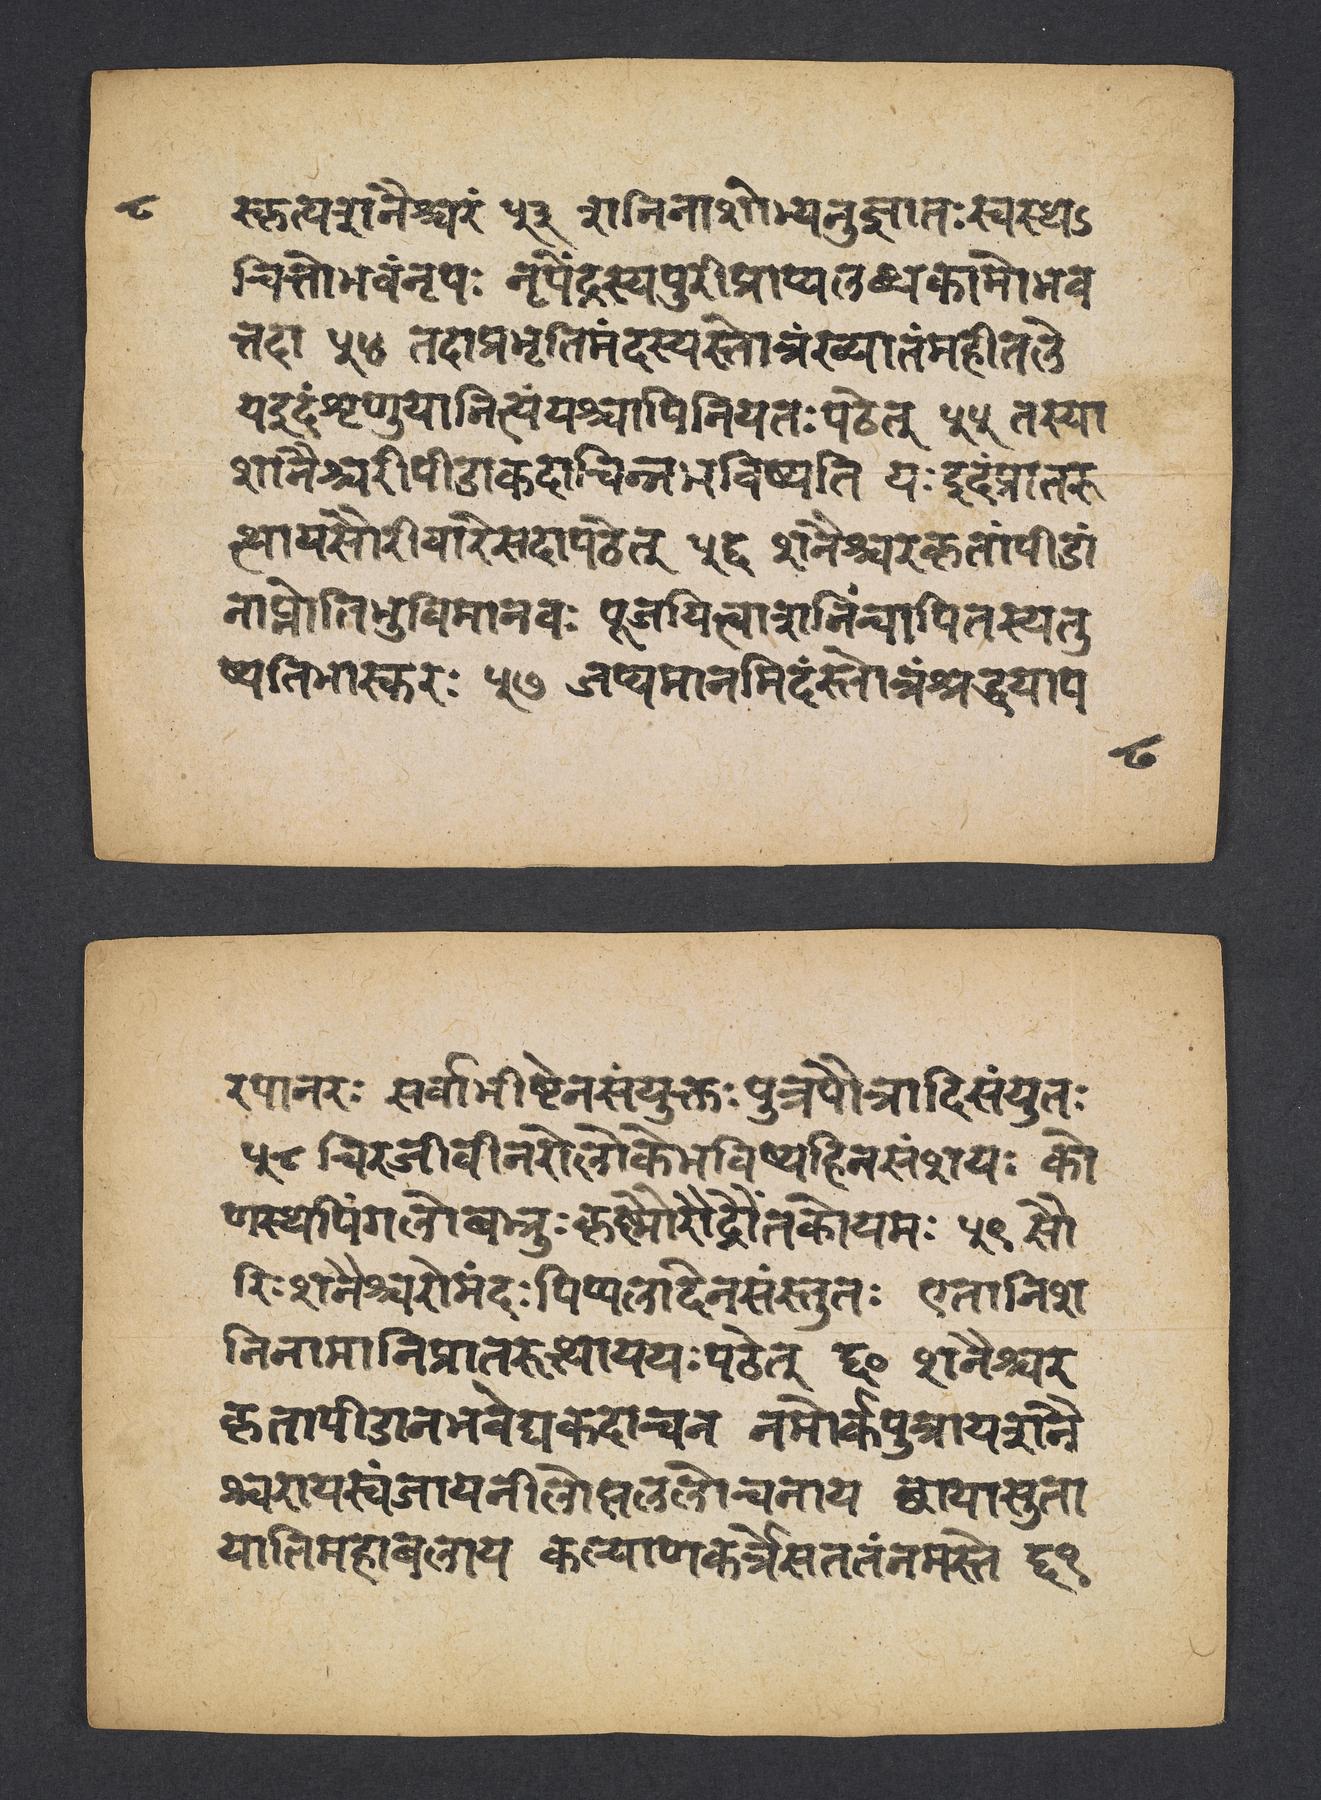 ८
स्कृत्यशनैश्चरं ५३ शनिनाशोभ्यनुज्ञातःस्वस्थेऽ
चित्तोभवंनृपः नृपेंद्रस्यपुरीप्राप्यलब्धकामोभव
त्तदा ५४ तदाप्रभृतिमंदस्यस्तोत्रंख्यातंमहीतले
यइदंशृणुयानित्यंयश्चापिनियतःपठेत् ५५ तस्या
शानैश्चरीपीडाकदाचिन्नभविष्यति यःइदंप्रातरु
त्थायसौरीवारेसदापठेत् ५६ शनैश्चरकृतांपीडां
नाप्नोतिभुविमानवः पूजयित्वाशनिंचापितस्यतु
ष्यतिभास्करः ५७ जप्यमानमिदंस्तोत्रंश्रद्धयाप
८
रयानरः सर्वाभीष्टेनसंयुक्तःपुत्रपौत्रादिसंयुतः
५८ चिरजीवीनरोलोकेभविष्यहिनसंशयः को
णस्थेपिंगलोबभ्रुःकृष्णोरौद्रोंतकोयमः ५९ सौ
रिःशनैश्चरोमंदःपिप्पलादेनसंस्तुतः एतानिश
निनामानिप्रातरुत्थाययःपठेत् ६० शनैश्चर
कृतापीडानभवेद्यकदाचन नमोर्कपुत्रायशनै
श्चरायस्वंजायनीलोत्पललोचनाय छायासुता
यातिमहाबलाय कल्याणकर्त्रेसततंनमस्ते ६१